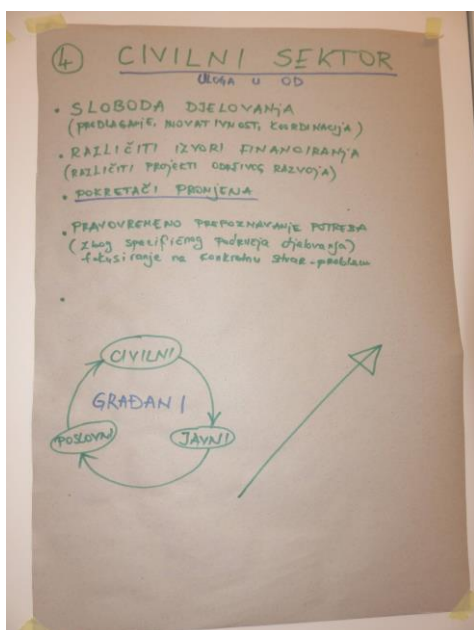 4 CIVILNI SEKTOR
ULOGA U OD
• SLOBODA DJELOVANJA
(PREDLAGANJE, INOVATIVNOST, KOORDINACIJA)
• RAZLIČITI IZVORI FINANCIRANJA
(RAZLIČITI PROJEKTI ODRŽIVOG RAZVOJA)
• POKRETAČI PROMJENA
• PRAVOVREMENO PREPOZNAVANJE POTREBA
(zbog specifičnog područja djelovanja)
fokusiranje na konkretnu stvar-problem
•
CIVILNI
GRAĐANI
POSLOVNI
JAVNI